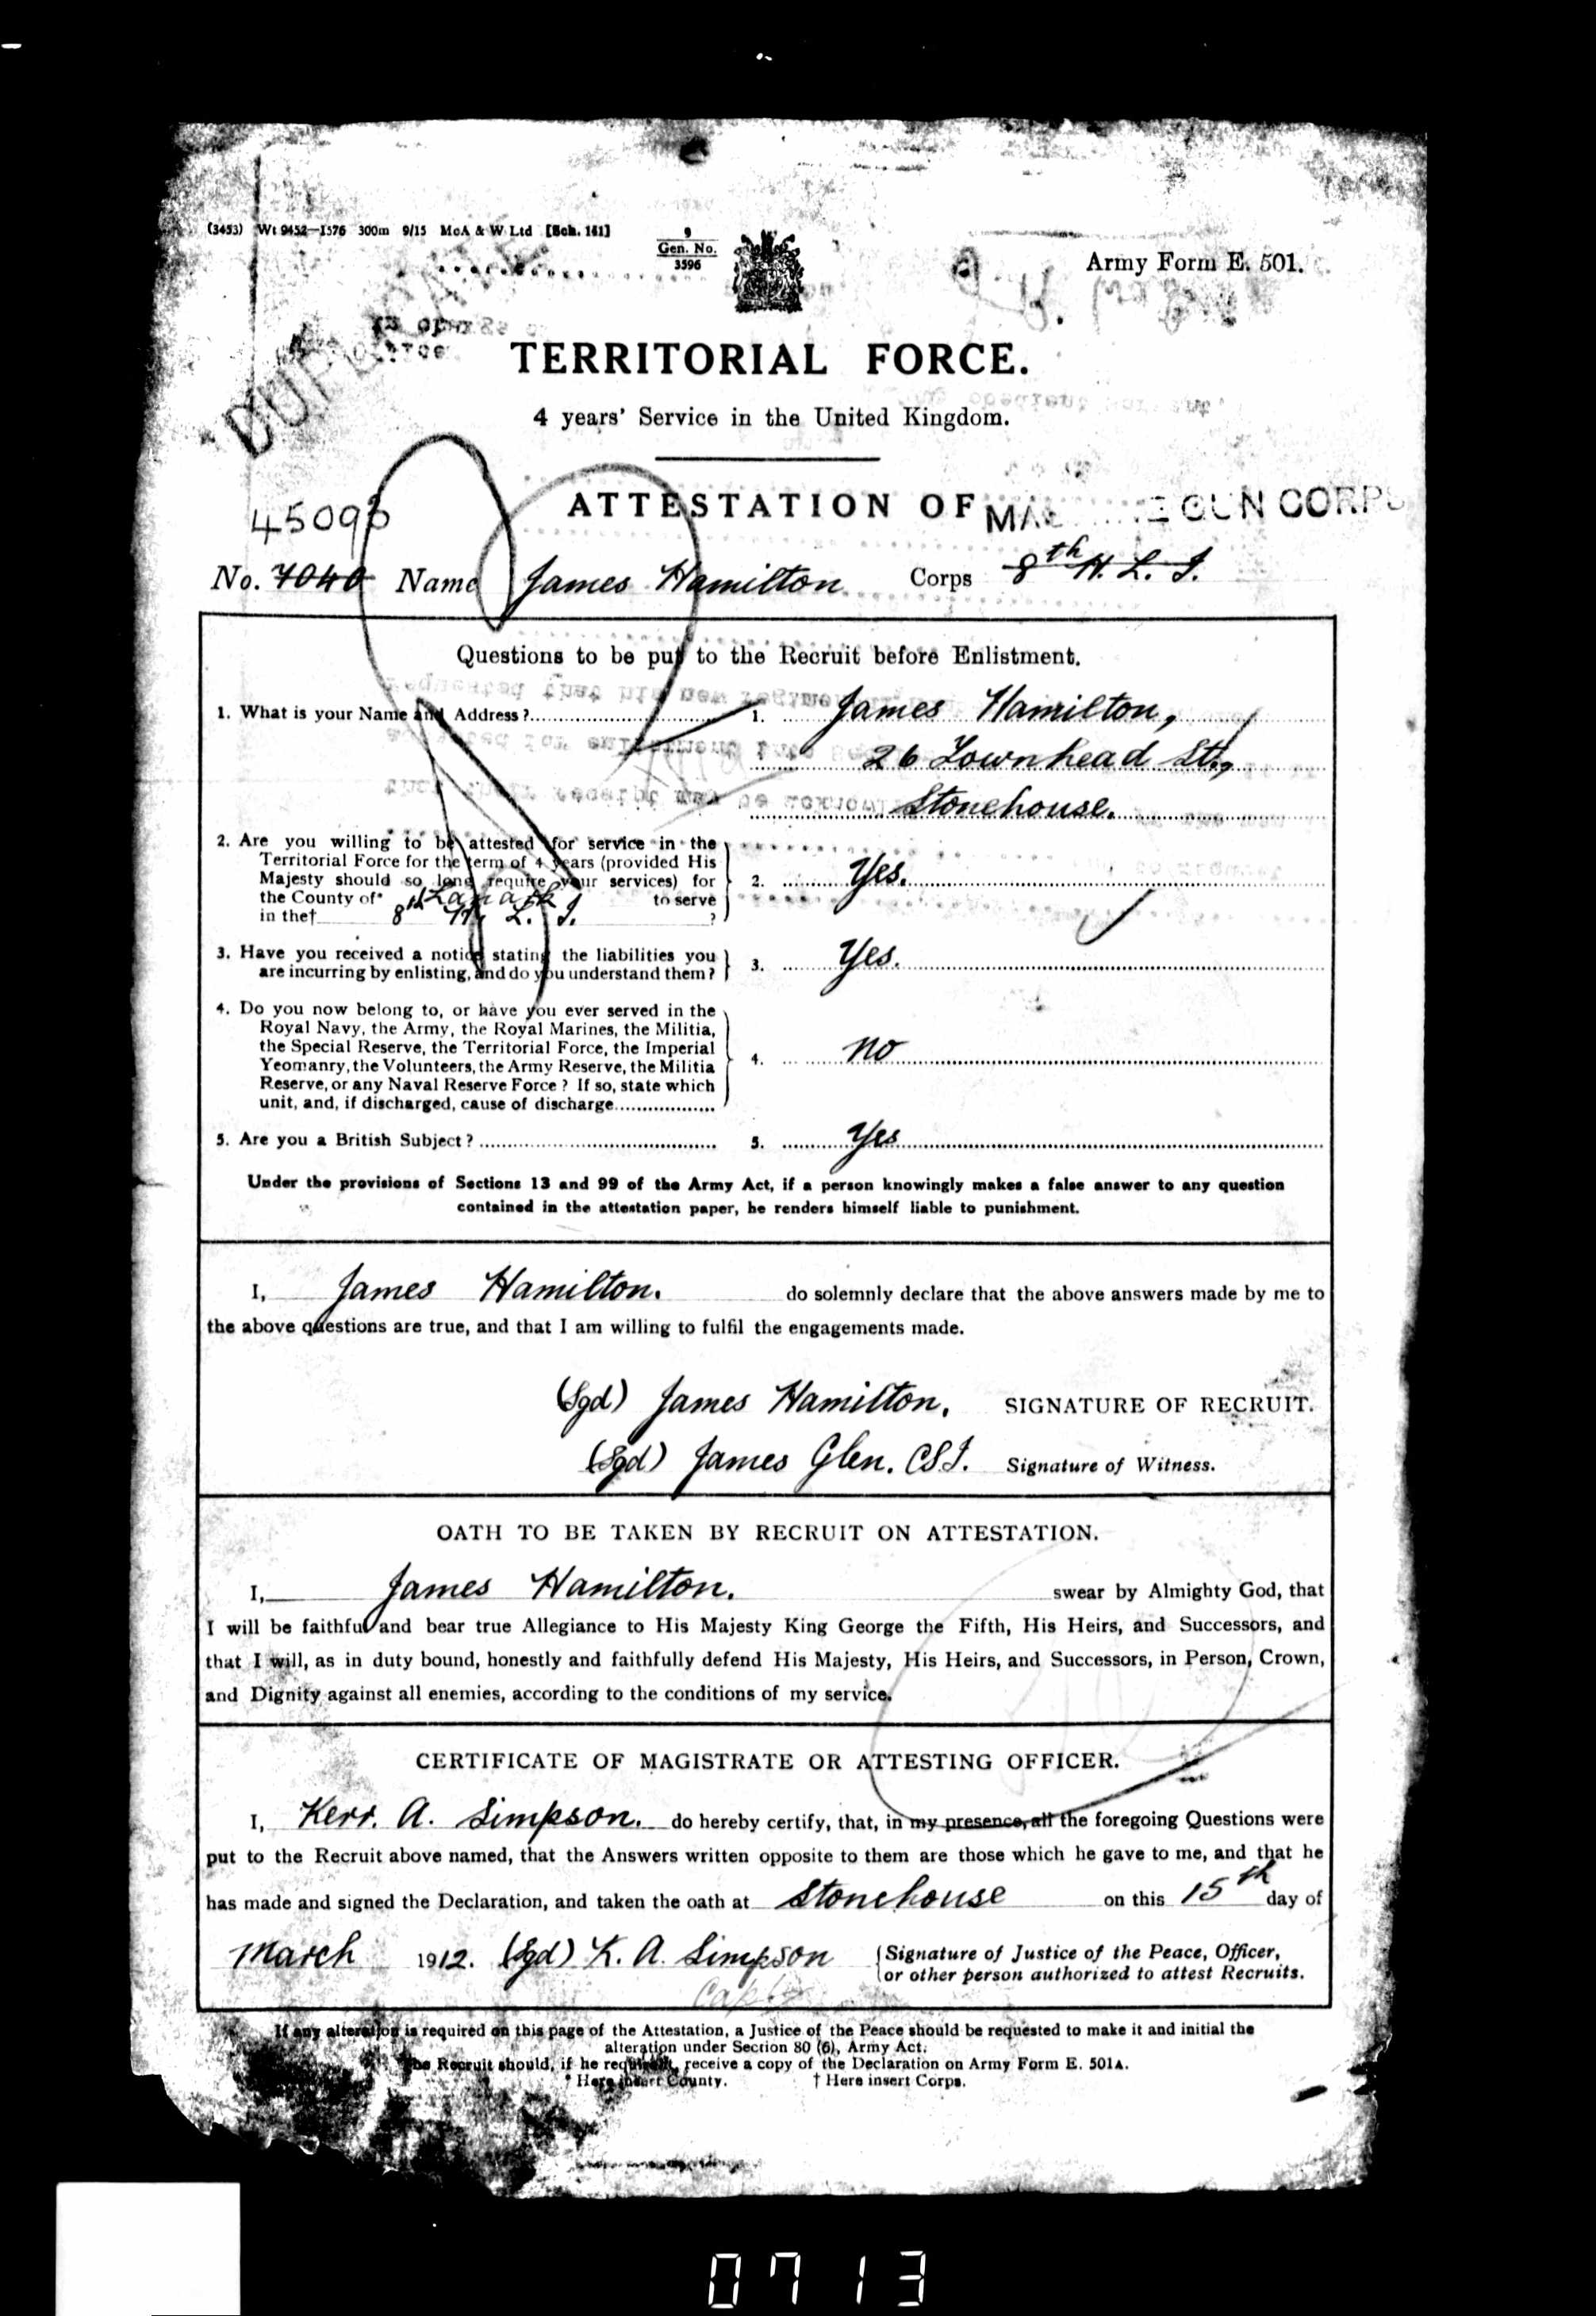 (3453) Wt 9452—1576 300m 9/15 McA & W Ltd [Sch. 161]
9
Gen. No.
3596
Army Form E. 501.
DUPLICATE
TERRITORIAL FORCE.
4 years' Service in the United Kingdom.
ATTESTATION OF
GUN CORPS
45093
No. 7040 Name James Hamilton Corps 8th H. L. I.
Questions to be put to the Recruit before Enlistment.
1. What is your Name and Address? 1. James Hamilton,
26 Townhead St.,
Stonehouse.
2. Are you willing to be attested for service in the
Territorial Force for the term of 4 years (provided His
Majesty should so long require your services) for
the County of* Lanark to serve
in the† 8th H. L. I. ?
2. Yes.
3. Have you received a notice stating the liabilities you
are incurring by enlisting, and do you understand them?
3. Yes.
4. Do you now belong to, or have you ever served in the
Royal Navy, the Army, the Royal Marines, the Militia,
the Special Reserve, the Territorial Force, the Imperial
Yeomanry, the Volunteers, the Army Reserve, the Militia
Reserve, or any Naval Reserve Force? If so, state which
unit, and, if discharged, cause of discharge
4. no
5. Are you a British Subject? 5. Yes
Under the provisions of Sections 13 and 99 of the Army Act, if a person knowingly makes a false answer to any question
contained in the attestation paper, he renders himself liable to punishment.
I, James Hamilton. do solemnly declare that the above answers made by me to
the above questions are true, and that I am willing to fulfil the engagements made.
(Sgd) James Hamilton, SIGNATURE OF RECRUIT.
(Sgd) James Glen. CSI. Signature of Witness.
OATH TO BE TAKEN BY RECRUIT ON ATTESTATION.
I, James Hamilton. swear by Almighty God, that
I will be faithful and bear true Allegiance to His Majesty King George the Fifth, His Heirs, and Successors, and
that I will, as in duty bound, honestly and faithfully defend His Majesty, His Heirs, and Successors, in Person, Crown,
and Dignity against all enemies, according to the conditions of my service.
CERTIFICATE OF MAGISTRATE OR ATTESTING OFFICER.
I, Kerr. A. Simpson. do hereby certify, that, in my presence, all the foregoing Questions were
put to the Recruit above named, that the Answers written opposite to them are those which he gave to me, and that he
has made and signed the Declaration, and taken the oath at Stonehouse on this 15th day of
March 1912. (Sgd) K. A. Simpson
Capt
Signature of Justice of the Peace, Officer,
or other person authorized to attest Recruits.
If any alteration is required on this page of the Attestation, a Justice of the Peace should be requested to make it and initial the
alteration under Section 80 (6), Army Act.
The Recruit should, if he require it, receive a copy of the Declaration on Army Form E. 501A.
* Here insert County. † Here insert Corps.
0713